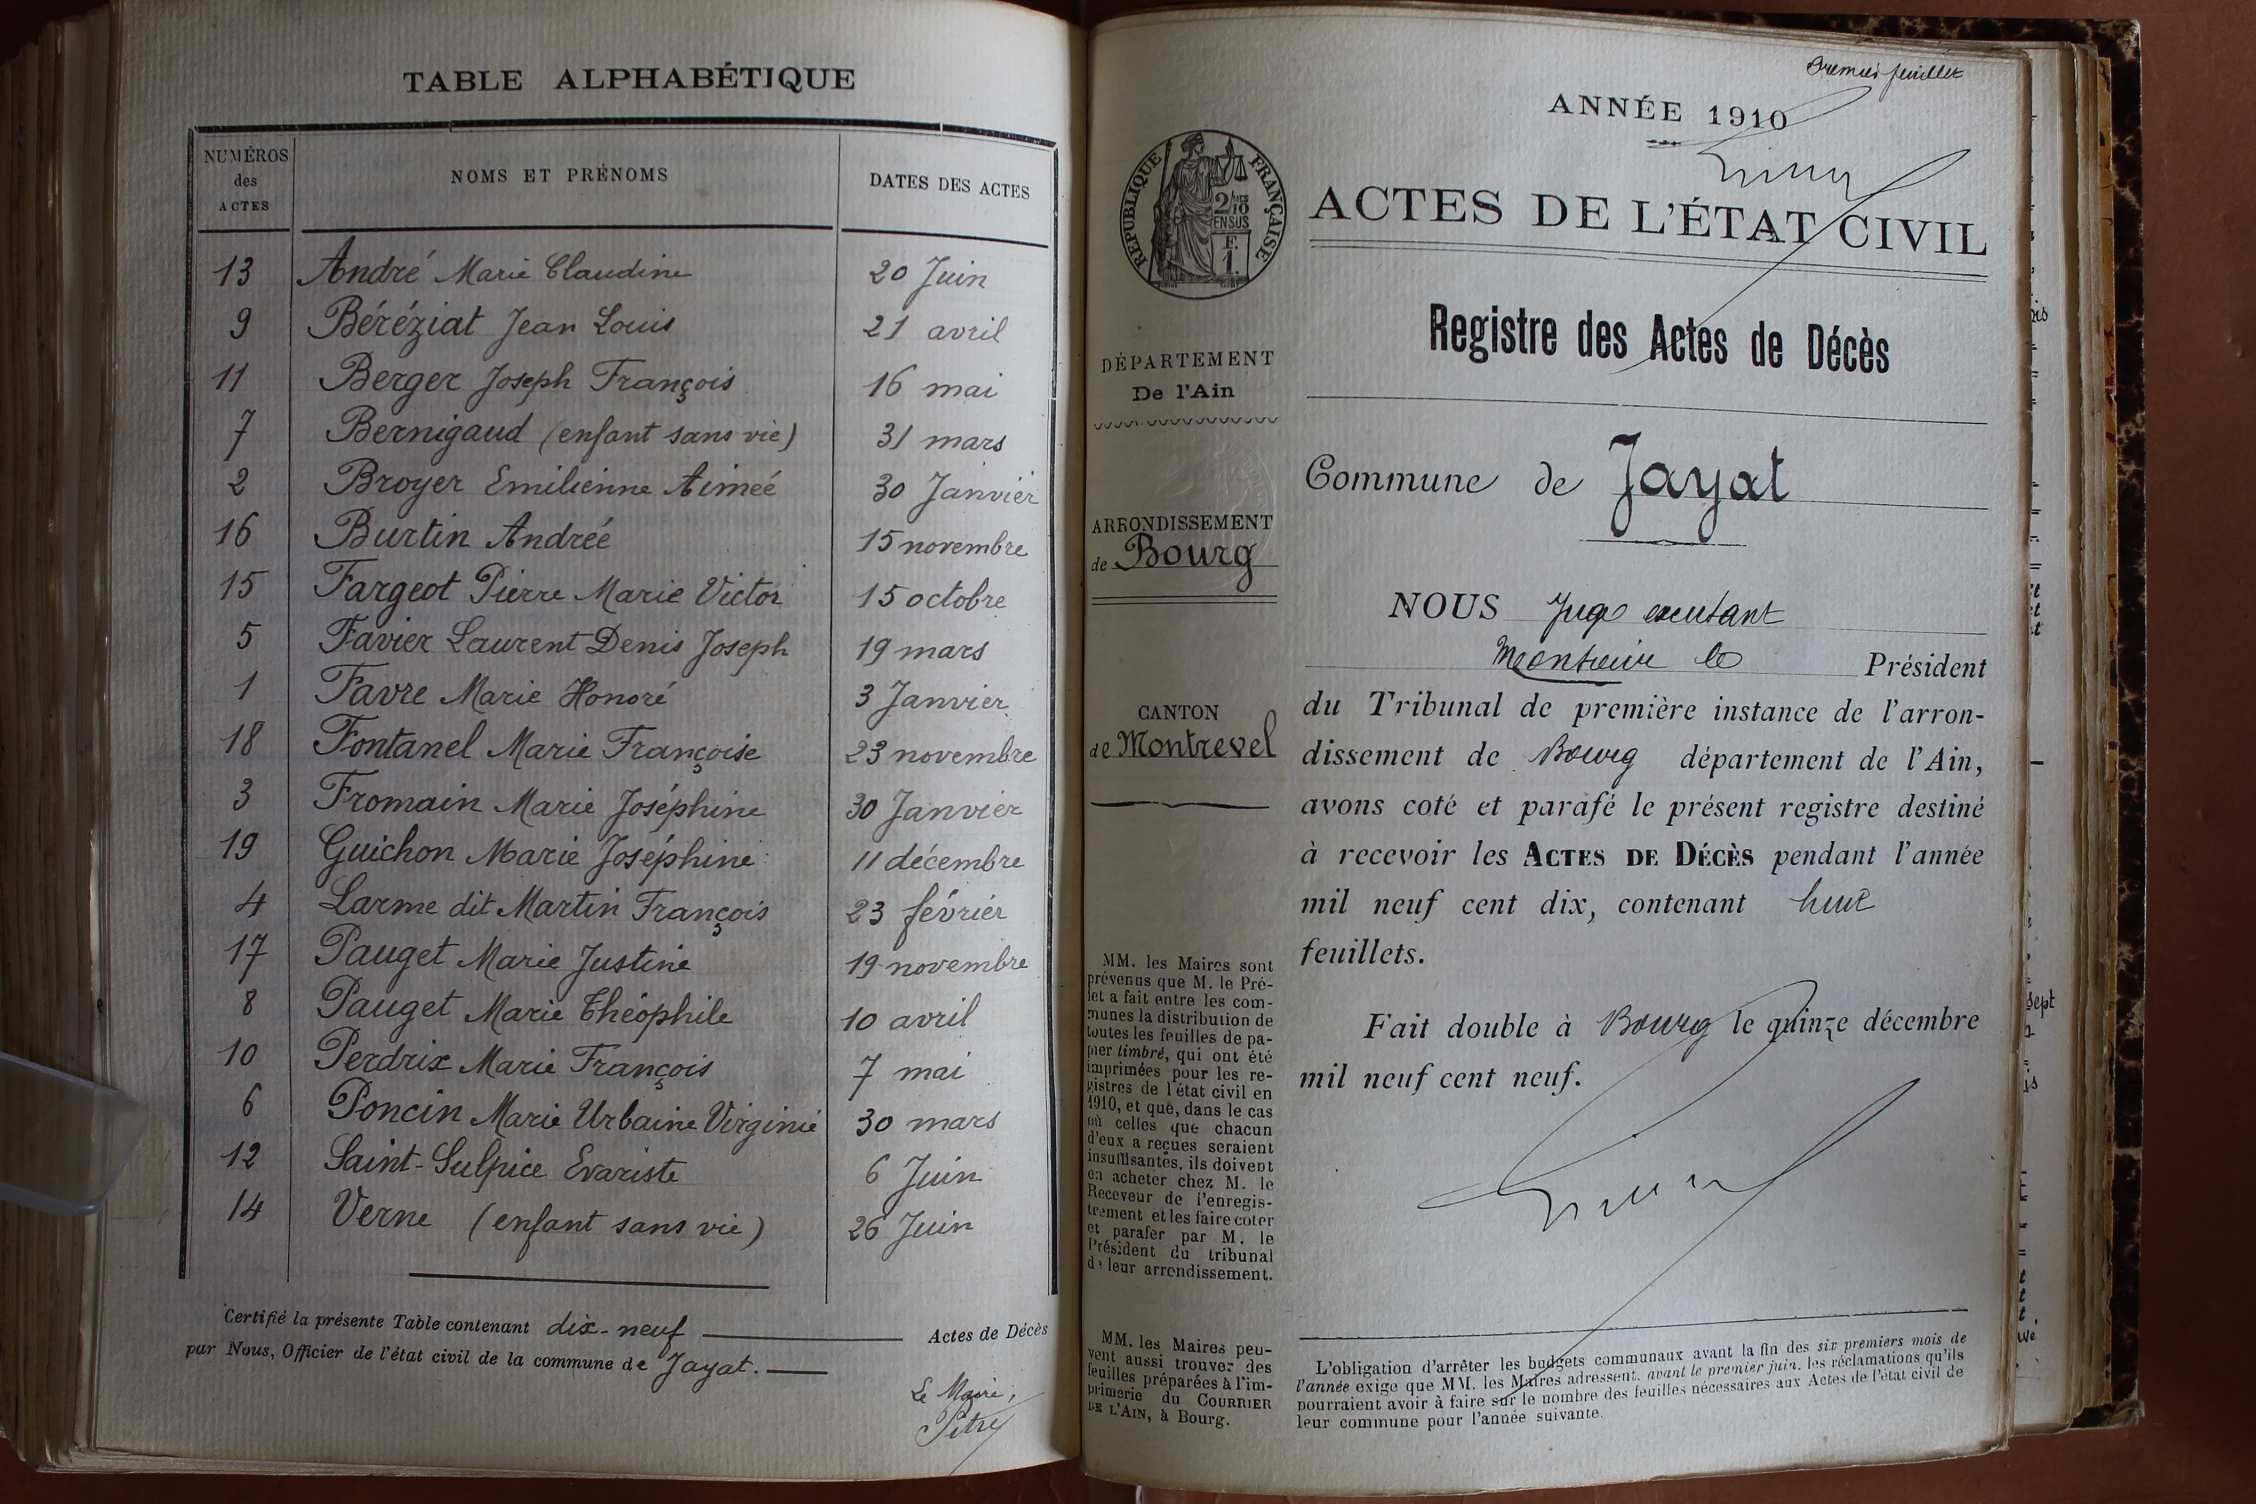 TABLE ALPHABÉTIQUE
NUMÉROS des ACTES NOMS ET PRÉNOMS DATES DES ACTES
13 André Marie Claudine 20 Juin
9 Béréziat Jean Louis 21 avril
11 Berger Joseph François 16 mai
7 Bernigaud (enfant sans vie) 31 mars
2 Broyer Emilienne Aimeé 30 Janvier
16 Burtin Andreé 15 novembre
15 Fargeot Pierre Marie Victor 15 octobre
5 Favier Laurent Denis Joseph 19 mars
1 Favre Marie Honoré 3 Janvier
18 Fontanel Marie Françoise 23 novembre
3 Fromain Marie Joséphine 30 Janvier
19 Guichon Marie Joséphine 11 décembre
4 Larme dit Martin François 23 février
17 Pauget Marie Justine 19 novembre
8 Pauget Marie Théophile 10 avril
10 Perdrix Marie François 7 mai
6 Poncin Marie Urbaine Virginie 30 mars
12 Saint-Sulpice Evariste 6 Juin
14 Verne (enfant sans vie) 26 Juin
Certifié la présente Table contenant dix-neuf Actes de Décès
par Nous, Officier de l'état civil de la commune de Jayat.
Le Maire,
Pitre
Premier feuillet
ANNÉE 1910
RÉPUBLIQUE FRANÇAISE
2/10 EN SUS
F.
1.
ACTES DE L'ÉTAT CIVIL
Registre des Actes de Décès
DÉPARTEMENT
De l'Ain
Commune de Jayat
ARRONDISSEMENT
de Bourg
CANTON
de Montrevel
NOUS Juge
Monsieur le Président
du Tribunal de première instance de l'arron-
dissement de Bourg département de l'Ain,
avons coté et parafé le présent registre destiné
à recevoir les ACTES DE DÉCÈS pendant l'année
mil neuf cent dix, contenant huit
feuillets.
Fait double à Bourg le quinze décembre
mil neuf cent neuf.
MM. les Maires sont
prévenus que M. le Pré-
fet a fait entre les com-
munes la distribution de
toutes les feuilles de pa-
pier timbré, qui ont été
imprimées pour les re-
gistres de l'état civil en
1910, et que, dans le cas
où celles que chacun
d'eux a reçues seraient
insuffisantes, ils doivent
en acheter chez M. le
Receveur de l'enregis-
trement et les faire coter
et parafer par M. le
Président du tribunal
de leur arrondissement.
MM. les Maires peu-
vent aussi trouver des
feuilles préparées à l'im-
primerie du COURRIER
DE L'AIN, à Bourg.
L'obligation d'arrêter les budgets communaux avant la fin des six premiers mois de
l'année exige que MM. les Maires adressent, avant le premier juin, les réclamations qu'ils
pourraient avoir à faire sur le nombre des feuilles nécessaires aux Actes de l'état civil de
leur commune pour l'année suivante.